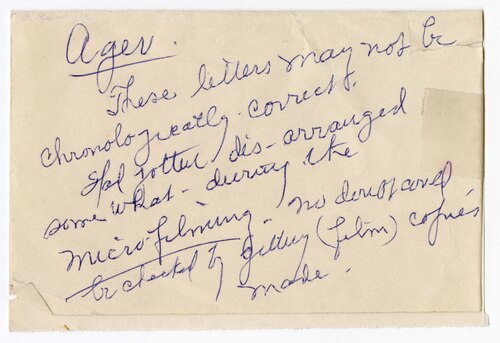 Ager.
These letters may not be
chronologically correct.
Had gotten dis-arranged
some what - during the
microfilming - no doubt could
be checked by getting (film) copies
made.